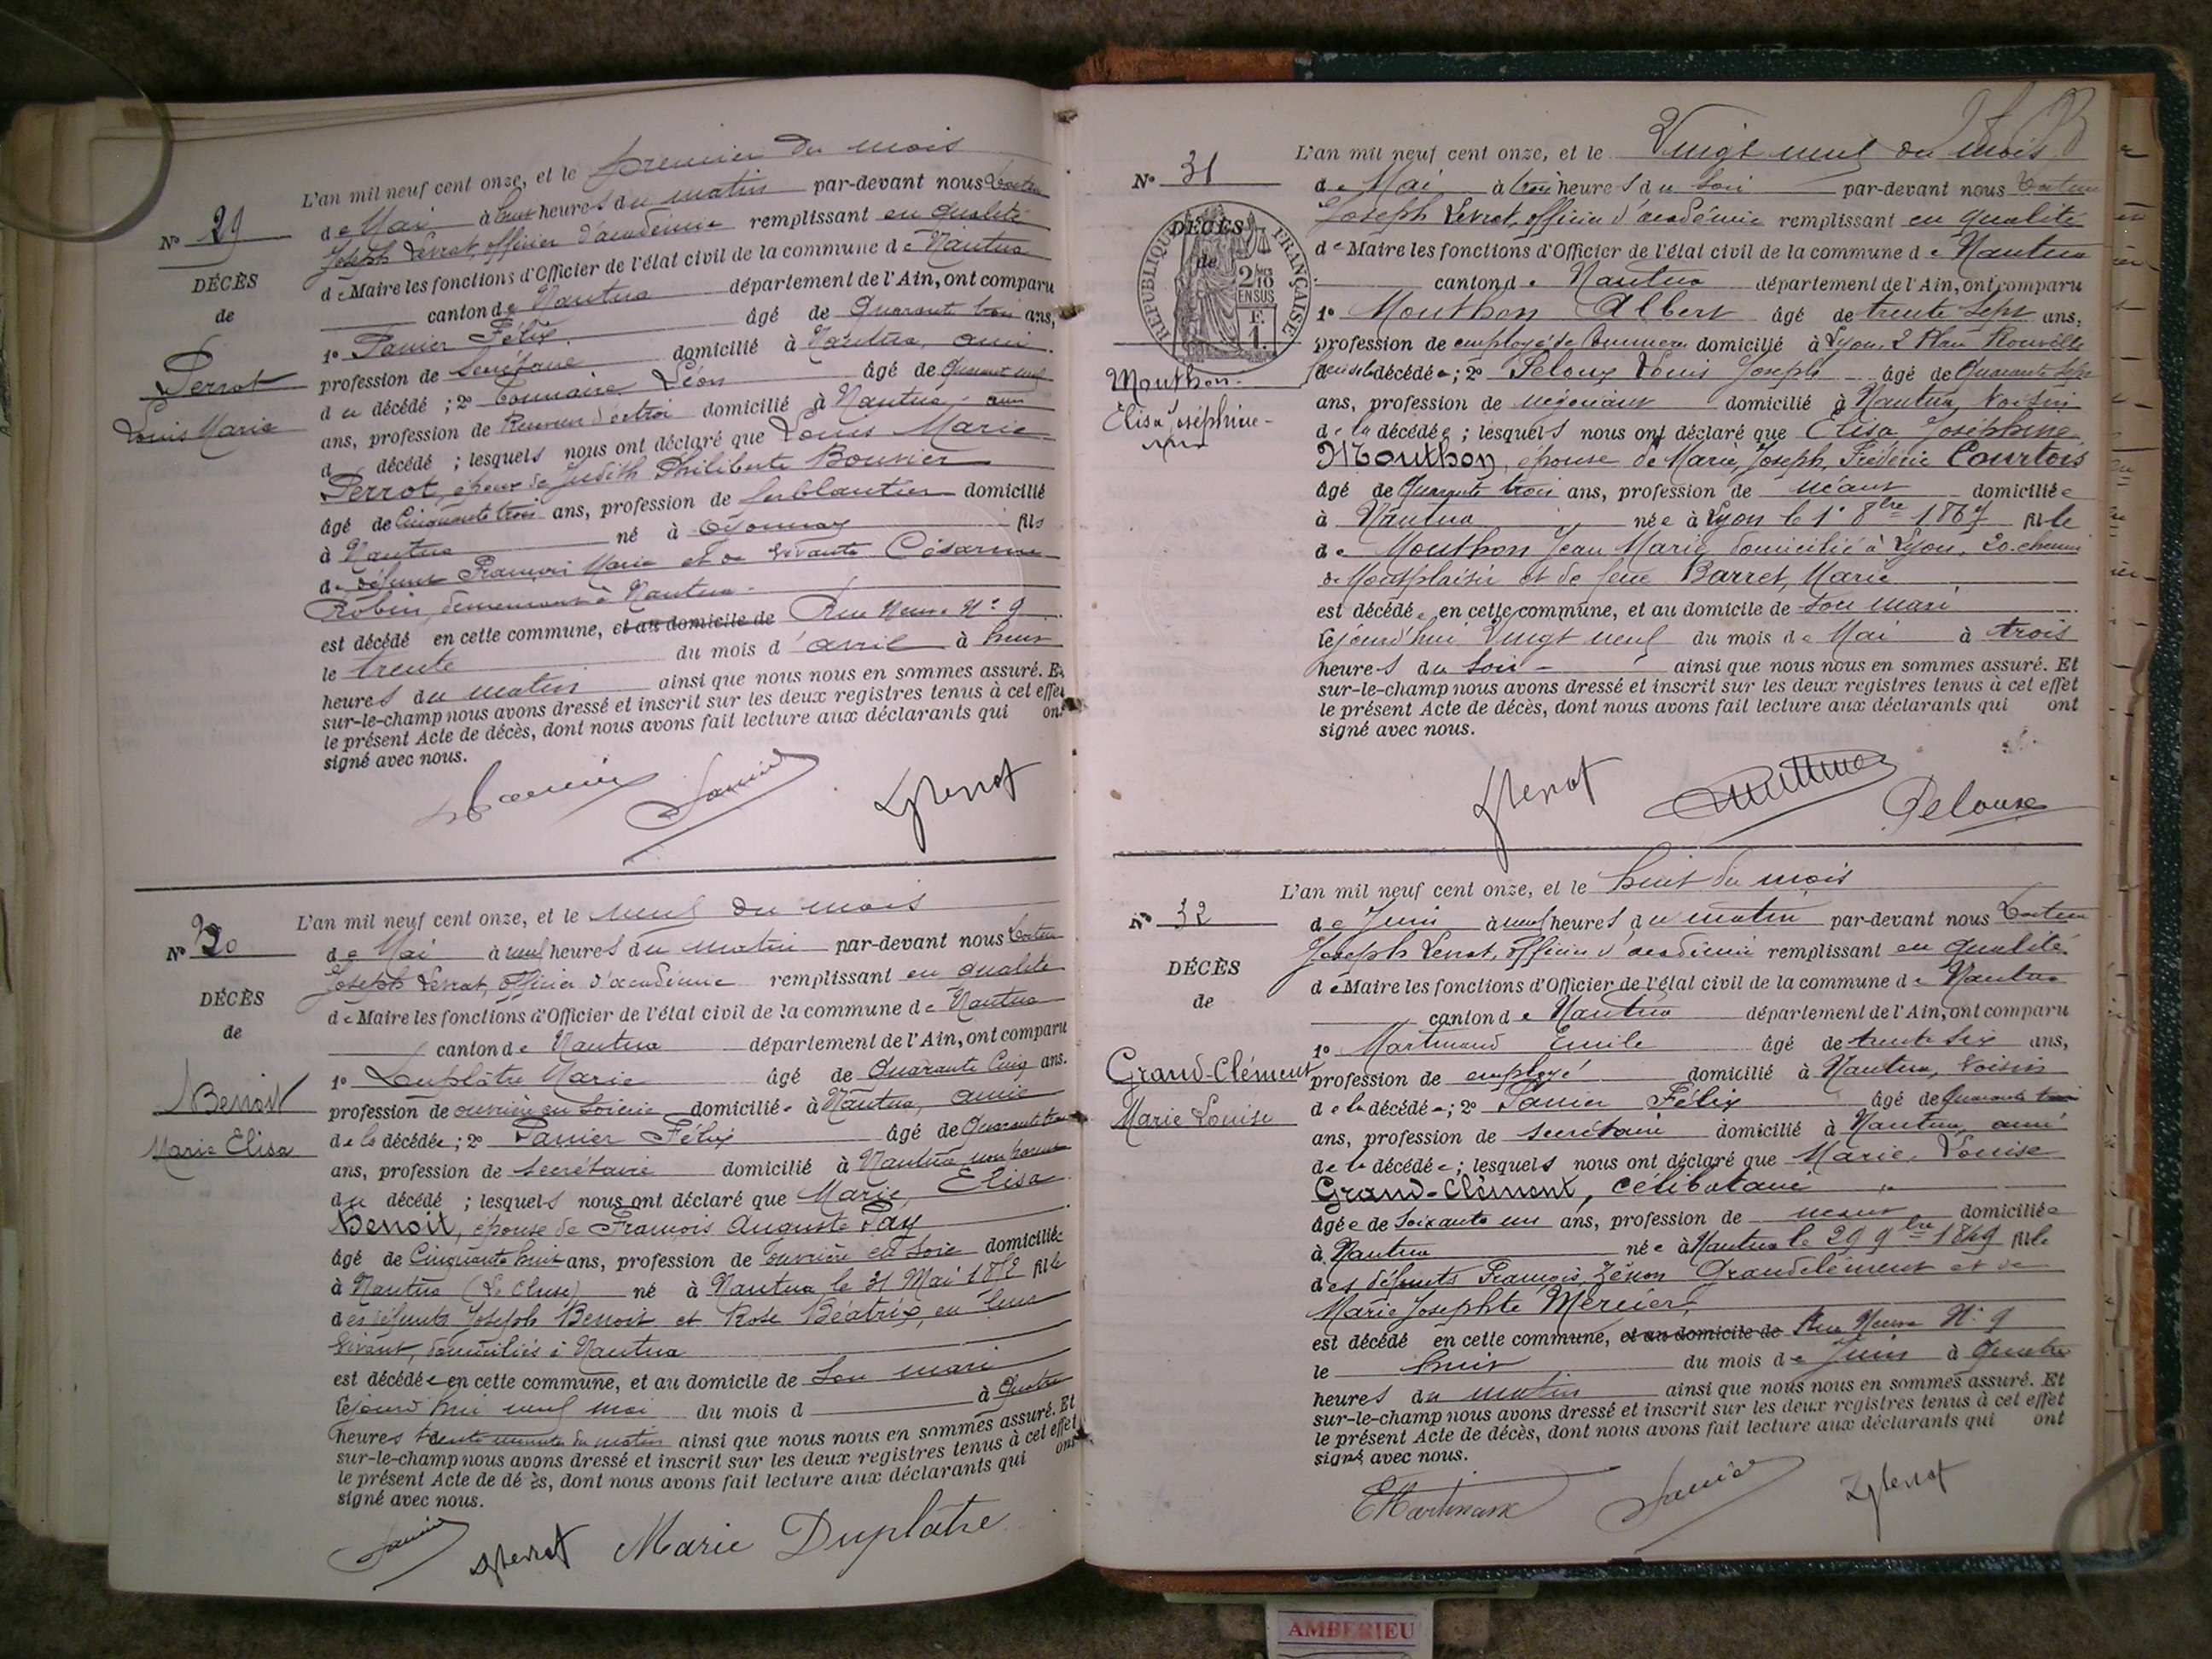 L'an mil neuf cent onze, et le premier du mois
Nº 29
de Mai à huit heures du matin par-devant nous Docteur
Joseph Levrat, officier d'académie remplissant en qualité
DÉCÈS
de Maire les fonctions d'Officier de l'état civil de la commune de Nantua
de
canton de Nantua département de l'Ain, ont comparu
1º Panier Félix. âgé de Quarante trois ans,
Perrot
profession de Secrétaire domicilié à Nantua, ami
Louis Marie
du décédé ; 2º Tournaire Léon âgé de Quarante neuf
ans, profession de Receveur d'octroi domicilié à Nantua, ami
d décédé ; lesquels nous ont déclaré que Louis Marie
Perrot, époux de Judith Philiberte Bouvier
âgé de Cinquante trois ans, profession de ferblantier domicilié
à Nantua né à Oyonnax fils
de défunt François Marie et de vivante Césarine
Robin, demeurant à Nantua
est décédé en cette commune, et au domicile de Rue Neuve Nº 9
le trente du mois d'avril à huit
heures du matin ainsi que nous nous en sommes assuré. Et
sur-le-champ nous avons dressé et inscrit sur les deux registres tenus à cet effet
le présent Acte de décès, dont nous avons fait lecture aux déclarants qui ont
signé avec nous.
Panier
JLevrat
L'an mil neuf cent onze, et le neuf du mois
Nº 30
de Mai à neuf heures du matin par-devant nous Docteur
Joseph Levrat, officier d'académie remplissant en qualité
DÉCÈS
de Maire les fonctions d'Officier de l'état civil de la commune de Nantua
de
canton de Nantua département de l'Ain, ont comparu
1º Duplâtre Marie âgé de Quarante Cinq ans.
Benoit
profession de ouvrière en soierie domiciliée à Nantua, amie
Marie Elisa
de la décédée ; 2º Panier Félix âgé de Quarante trois
ans, profession de Secrétaire domicilié à Nantua non parent
du décédé ; lesquels nous ont déclaré que Marie, Elisa
Benoit, épouse de François Auguste Pay
âgé de Cinquante huit ans, profession de ouvrière en soie domiciliée
à Nantua (La Cluse) né à Nantua le 31 Mai fille
des défunts Joseph Benoit et Rose Béatrix, en leur
vivant, domiciliés à Nantua
est décédée en cette commune, et au domicile de Son mari
le jourd'hui neuf mai du mois d à Quatre
heures trente minutes du matin ainsi que nous nous en sommes assuré. Et
sur-le-champ nous avons dressé et inscrit sur les deux registres tenus à cet effet
le présent Acte de décès, dont nous avons fait lecture aux déclarants qui ont
signé avec nous.
Panier JLevrat Marie Duplâtre
L'an mil neuf cent onze, et le Vingt neuf du mois
Nº 31
de Mai à trois heures du soir par-devant nous Docteur
Joseph Levrat, officier d'académie remplissant en qualité
DÉCÈS
de
RÉPUBLIQUE FRANÇAISE
2/10 EN SUS
F. 1.
de Maire les fonctions d'Officier de l'état civil de la commune de Nantua
canton de Nantua département de l'Ain, ont comparu
1º Mouthon Albert âgé de trente sept ans,
profession de employé de Commerce domicilié à Lyon, 2
Mouthon
décédée ; 2º Peloux Louis Joseph âgé de Quarante sept
Elisa Joséphine
ans, profession de négociant domicilié à Nantua, voisin
de la décédée ; lesquels nous ont déclaré que Elisa Joséphine
Mouthon, épouse de Marie, Joseph, Frédéric Courtois
âgé de Quarante trois ans, profession de néant domiciliée
à Nantua née à Lyon le 1º 8bre 1867 fille
de Mouthon Jean Marie, domicilié à Lyon, 20, chemin
de Montplaisir et de feue Barret, Marie
est décédée en cette commune, et au domicile de son mari
le jourd'hui Vingt neuf du mois de Mai à trois
heures du soir ainsi que nous nous en sommes assuré. Et
sur-le-champ nous avons dressé et inscrit sur les deux registres tenus à cet effet
le présent Acte de décès, dont nous avons fait lecture aux déclarants qui ont
signé avec nous.
JLevrat Peloux
L'an mil neuf cent onze, et le huit du mois
Nº 32
de Juin à neuf heures du matin par-devant nous Docteur
Joseph Levrat, officier d'académie remplissant en qualité
DÉCÈS
de Maire les fonctions d'Officier de l'état civil de la commune de Nantua
de
canton de Nantua département de l'Ain, ont comparu
1º Martinand Emile âgé de trente six ans,
Grand-Clément
profession de employé domicilié à Nantua, voisin
Marie Louise
de la décédée ; 2º Panier Félix âgé de Quarante trois
ans, profession de secrétaire domicilié à Nantua, ami
de la décédée ; lesquels nous ont déclaré que Marie, Louise
Grand-Clément, célibataire
âgée de Soixante un ans, profession de néant domiciliée
à Nantua née à Nantua le 29 9bre 1849 fille
des défunts François, Zénon Grandclément et de
Marie Josephte Mercier,
est décédé en cette commune, et au domicile de Rue Neuve Nº 9
le huit du mois de Juin à Quatre
heures du matin ainsi que nous nous en sommes assuré. Et
sur-le-champ nous avons dressé et inscrit sur les deux registres tenus à cet effet
le présent Acte de décès, dont nous avons fait lecture aux déclarants qui ont
signé avec nous.
EMartinand Panier JLevrat
AMBERIEU